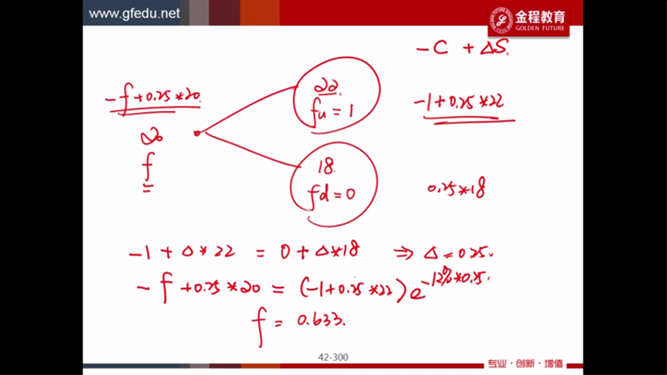 www.gfedu.net
金程教育
GOLDEN FUTURE
-C + ΔS.
-f+0.25*20.
22
fu=1
-1+0.25*22
20
f
18.
fd=0
0.25*18
-1+Δ*22 = 0+Δ*18 ⇒ Δ=0.25.
-f+0.25*20 = (-1+0.25*22)e^-12%*0.25.
f = 0.633.
42-300
专业·创新·增值